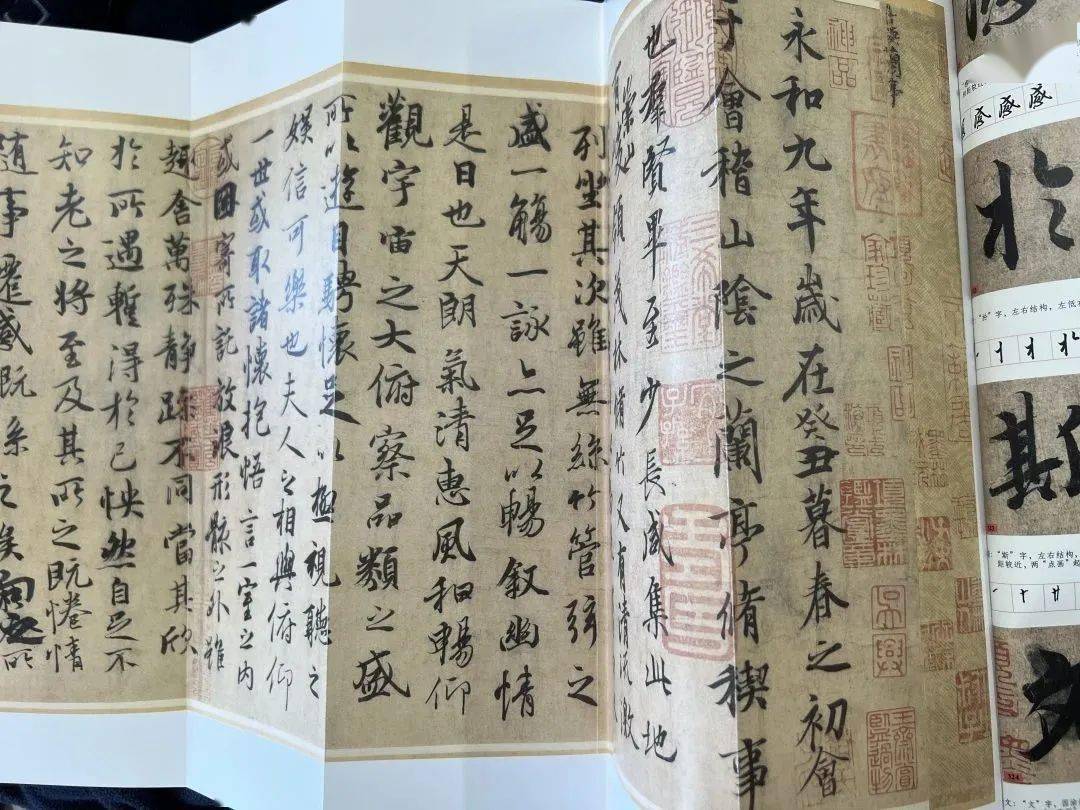 永和九年歲在癸丑暮春之初會
于會稽山陰之蘭亭脩稧事
也羣賢畢至少長咸集此地
有崇山峻領茂林脩竹又有清流激
列坐其次雖無絲竹管弦之
盛一觴一詠亦足以暢敘幽情
是日也天朗氣清惠風和暢仰
觀宇宙之大俯察品類之盛
所以遊目騁懷足以極視聽之
娛信可樂也夫人之相與俯仰
一世或取諸懷抱悟言一室之內
或因寄所託放浪形骸之外雖
趣舍萬殊靜躁不同當其欣
於所遇暫得於己怏然自足不
知老之將至及其所之既惓情
隨事遷感慨係之矣向之所
感 感
於
“於”字，左右结构，左低
斯
“斯”字，左右结构，
距较近，两“点画”起
124
文：“文”字，